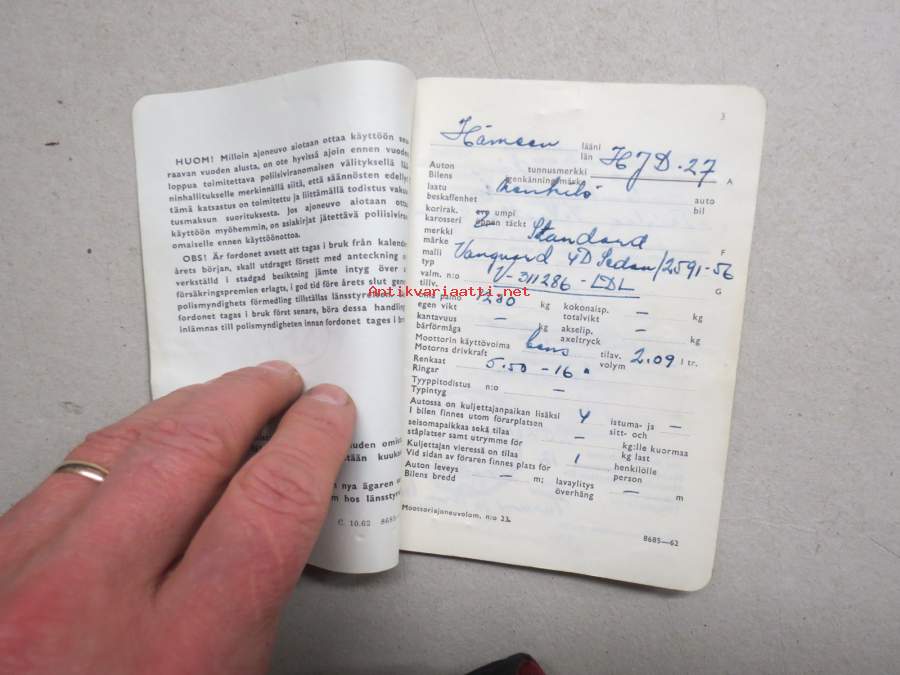 HUOM! Milloin ajoneuvo aiotaan ottaa käyttöön seu
raavan vuoden alusta, on ote hyvissä ajoin ennen vuoden
loppua toimitettava poliisiviranomaisen välityksellä lää
ninhallitukselle merkinnällä siitä, että säännösten edelly
tämä katsastus on toimitettu ja liittämällä todistus vaku
tusmaksun suorituksesta. Jos ajoneuvo aiotaan otta
käyttöön myöhemmin, on asiakirjat jätettävä poliisiviran
omaiselle ennen käyttöönottoa.
OBS! Är fordonet avsett att tagas i bruk från kalender
årets början, skall utdraget försett med anteckning o
verkställd i stadgad besiktning jämte intyg över
försäkringspremien erlagts, i god tid före årets slut geno
polismyndighets förmedling tillställas länsstyrelsen.
fordonet tagas i bruk först senare, böra dessa handling
inlämnas till polismyndigheten innan fordonet tages i br
uuden omis
tään kuukau
nya ägaren
m hos länsstyre
C. 10.62 8685-
3
Hämeen lääni
län HJD-27 A
Auton tunnusmerkki
Bilens igenkänningsmärke
laatu henkilö auto
beskaffenhet bil
korirak. avo umpi
karosseri öppen täckt
merkki Standard F
märke
malli Vanguard 4D Sedan/2591-56
typ G
valm. n:o V-311286-LDL
tillv.
Antikvariaatti.net
oma paino 1280 kg kokonaisp. — kg
egen vikt totalvikt
kantavuus — kg akselip. — kg
bärförmåga axeltryck
Moottorin käyttövoima bens tilav. 2.09 l tr.
Motorns drivkraft volym
Renkaat 5.50-16
Ringar
Tyyppitodistus n:o —
Typintyg
Autossa on kuljettajanpaikan lisäksi 4 istuma- ja —
I bilen finnes utom förarplatsen sitt- och
seisomapaikkaa sekä tilaa — kg:lle kuormaa
ståplatser samt utrymme för kg last
Kuljettajan vieressä on tilaa 1 henkilölle
Vid sidan av föraren finnes plats för person
Auton leveys — m; lavaylitys — m
Bilens bredd överhäng
Moottoriajoneuvolom. n:o 23.
8685—62